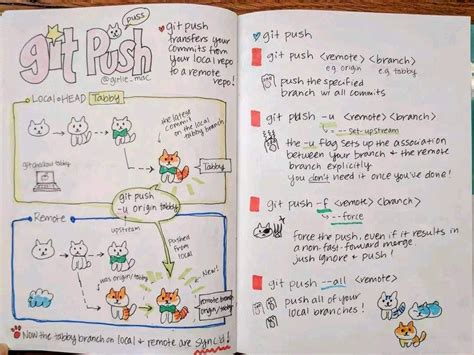 git Push
puss
@girlie_mac
git push
transfers your
commits from
your local repo
to a remote
repo!
Local HEAD Tabby
the latest
commit
on the local
tabby branch
git checkout tabby
Tabby
git push
-u origin tabby
Remote
upstream
pushed
from local
was origin/tabby
New!
remote branch
origin/tabby
Now the tabby branch on local & remote are sync'd!
git push
git push <remote> <branch>
e.g. origin e.g. tabby
push the specified
branch w/ all commits
git push -u <remote> <branch>
--set-upstream
the -u flag sets up the association
between your branch & the remote
branch explicitly.
You don't need it once you've done!
git push -f <remote> <branch>
--force
Force the push, even if it results in
a non-fast-forward merge.
just ignore & push!
git push --all <remote>
push all of your
local branches!